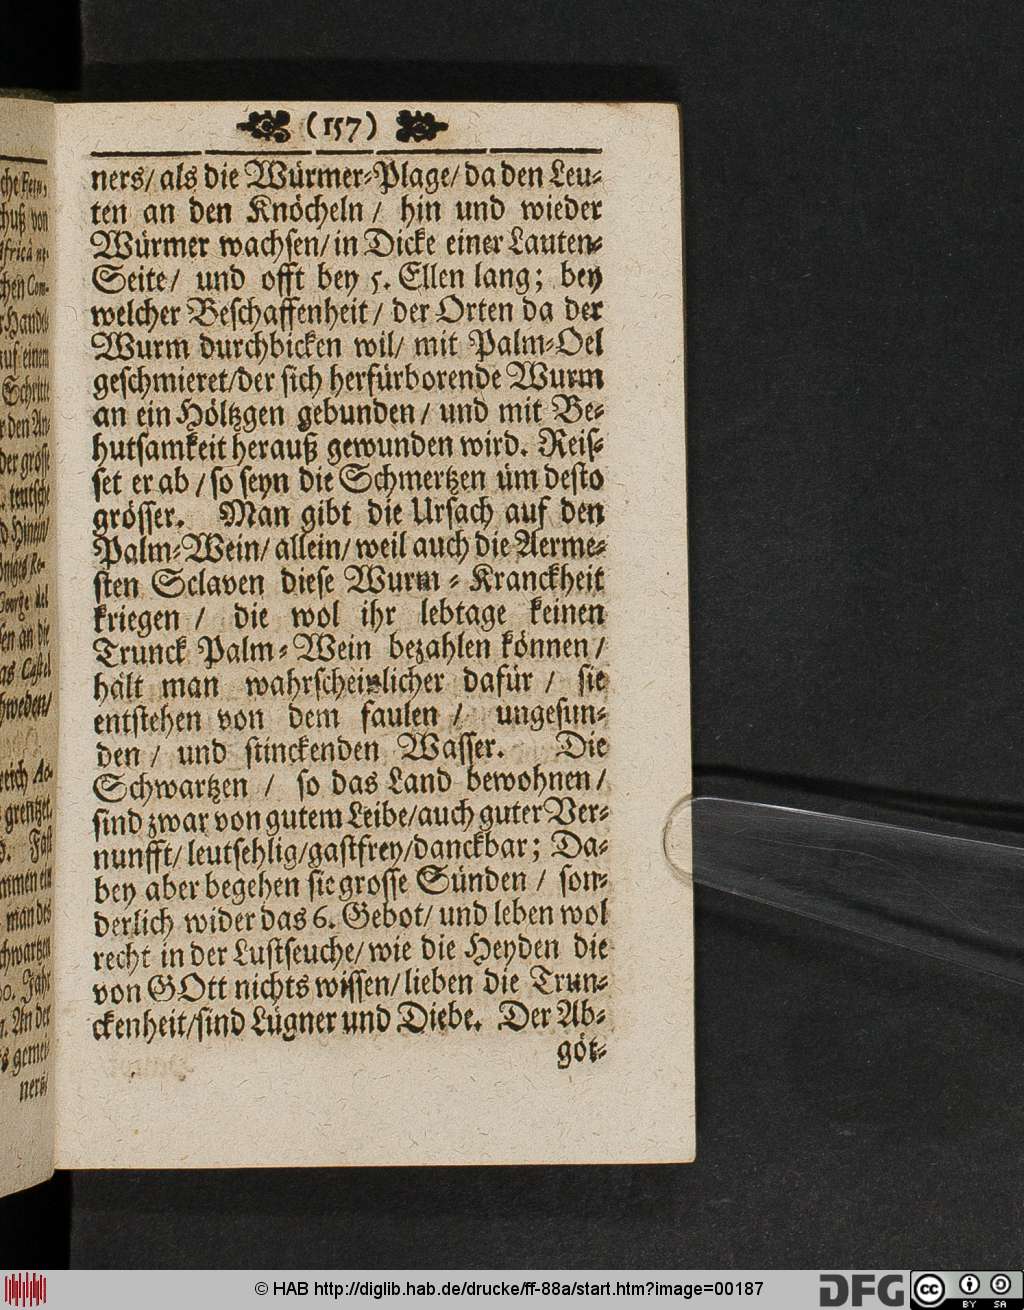 (157)
ners/ als die Würmer-Plage/ da den Leu-
ten an den Knöcheln / hin und wieder
Würmer wachsen/ in Dicke einer Lauten-
Seite/ und offt bey 5. Ellen lang; bey
welcher Beschaffenheit/ der Orten da der
Wurm durchbicken wil/ mit Palm-Oel
geschmieret/der sich herfürborende Wurm
an ein Höltzgen gebunden/ und mit Be-
hutsamkeit herauß gewunden wird. Reis-
set er ab / so seyn die Schmertzen üm desto
grösser. Man gibt die Ursach auf den
Palm-Wein/ allein/ weil auch die Aerme-
sten Sclaven diese Wurm-Kranckheit
kriegen / die wol ihr lebtage keinen
Trunck Palm-Wein bezahlen können /
hält man wahrscheinlicher dafür / sie
entstehen von dem faulen / ungesun-
den / und stinckenden Wasser. Die
Schwartzen / so das Land bewohnen/
sind zwar von gutem Leibe/auch guter Ver-
nunfft/ leutsehlig/gastfrey/danckbar; Da-
bey aber begehen sie grosse Sünden / son-
derlich wider das 6. Gebot/ und leben wol
recht in der Lustseuche/ wie die Heyden die
von GOtt nichts wissen/ lieben die Trun-
ckenheit/sind Lügner und Diebe. Der Ab-
göt-
© HAB http://diglib.hab.de/drucke/ff-88a/start.htm?image=00187
DFG
cc BY SA